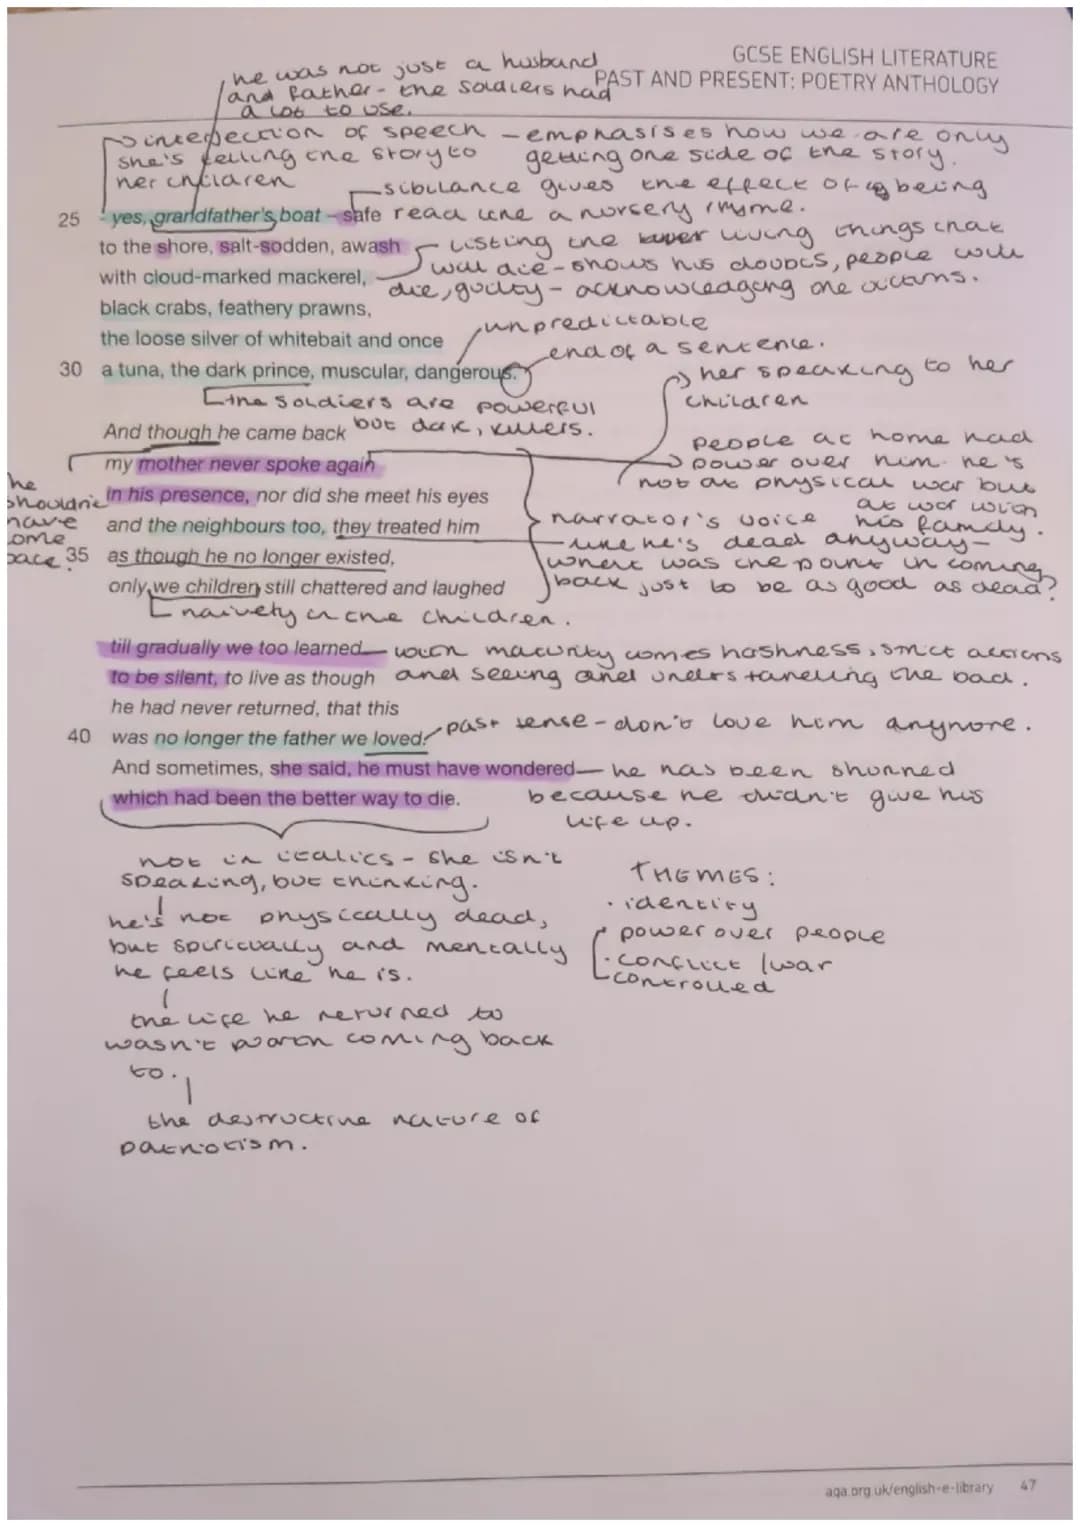 GCSE ENGLISH LITERATURE
PAST AND PRESENT: POETRY ANTHOLOGY
he was not just a husband
and father - the soldiers had
a lot to lose.
interjection of speech - emphasises how we are only
she's telling the story to getting one side of the story.
her children
sibilance gives the effect of being
25 - yes, grandfather's boat – safe read like a nursery rhyme.
to the shore, salt-sodden, awash listing the living things that
with cloud-marked mackerel, will die - shows his doubts, people will
die, guilty - acknowledging the victims.
black crabs, feathery prawns,
unpredictable
the loose silver of whitebait and once
end of a sentence.
30 a tuna, the dark prince, muscular, dangerous.
her speaking to her
children
the soldiers are powerful
but dark, killers.
And though he came back
people at home had
power over him. he's
not at physical war but
at war with
his family.
my mother never spoke again
he
shouldn't
have
come
back?
in his presence, nor did she meet his eyes
and the neighbours too, they treated him
narrator's voice
35 as though he no longer existed,
like he's dead anyway -
what was the point in coming
back just to be as good as dead?
only we children still chattered and laughed
naivety in the children.
till gradually we too learned - with maturity comes hashness, strict actions
to be silent, to live as though and seeing and understanding the bad.
he had never returned, that this
past tense - don't love him anymore.
40 was no longer the father we loved.
And sometimes, she said, he must have wondered - he has been shunned
which had been the better way to die. because he didn't give his
life up.
not in italics - she isn't
speaking, but thinking.
he's not physically dead,
but spiritually and mentally
he feels like he is.
the life he returned to
wasn't worth coming back
to.
the destructive nature of
patriotism.
THEMES:
· identity
· power over people
· conflict / war
controlled
aqa.org.uk/english-e-library 47